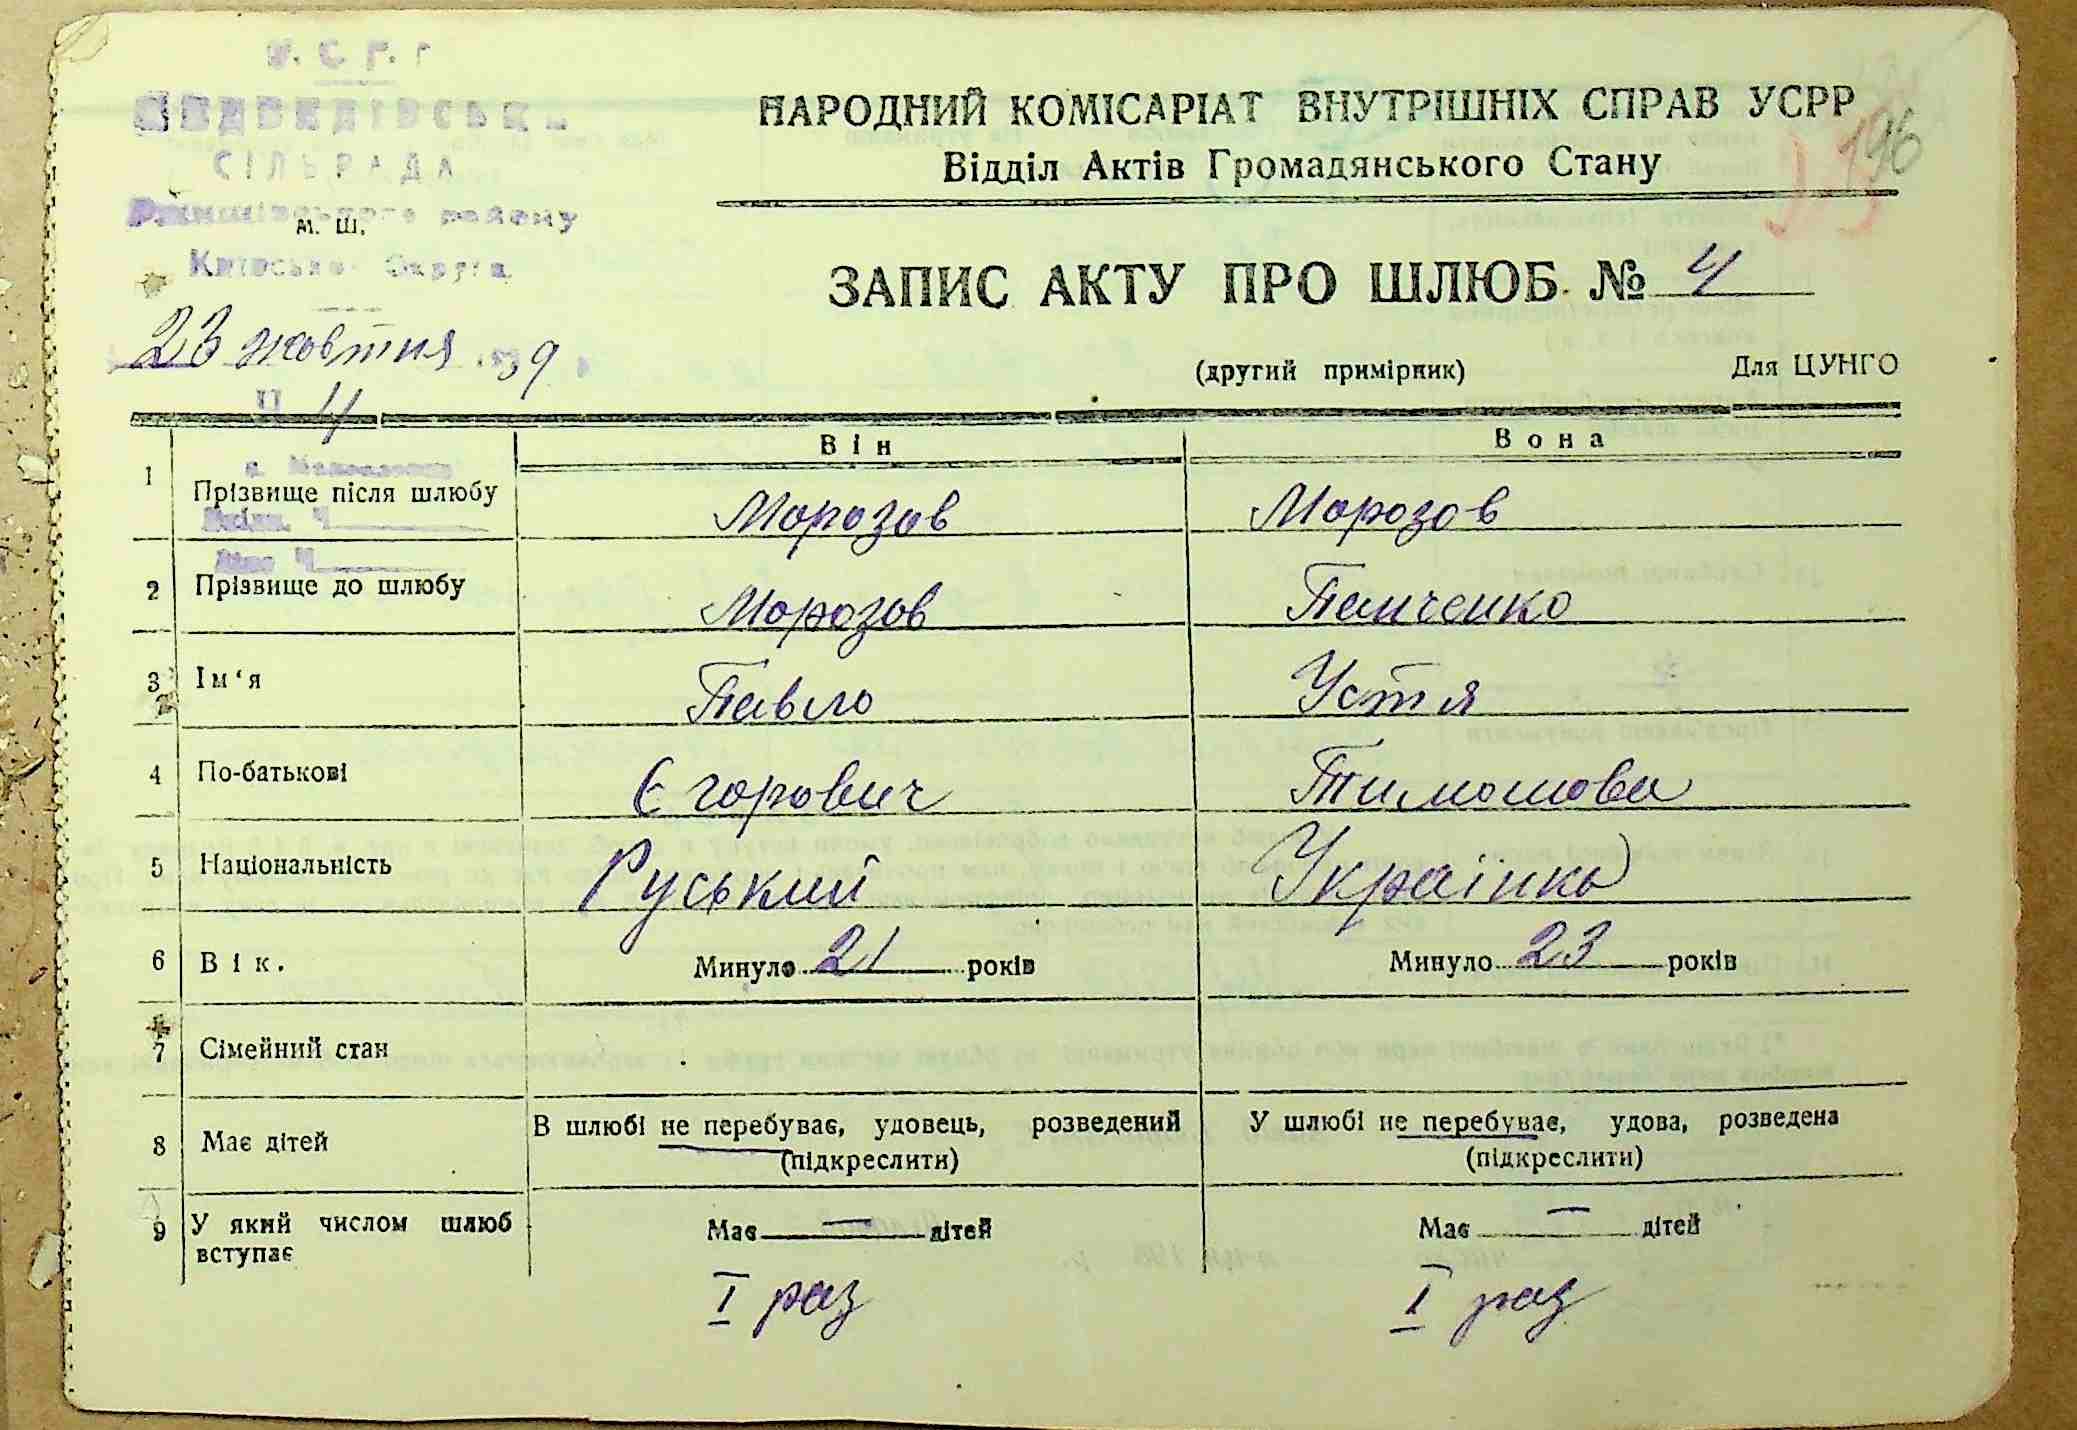 У. С. Р. Р
СІЛЬРАДА
району
М. Ш.
Округа
23 жовтня 39
Ч 4
196
НАРОДНИЙ КОМІСАРІАТ ВНУТРІШНІХ СПРАВ УСРР
Відділ Актів Громадянського Стану
ЗАПИС АКТУ ПРО ШЛЮБ № 4
(другий примірник) Для ЦУНГО
Він Вона
1 Прізвище після шлюбу Морозов Морозов
2 Прізвище до шлюбу Морозов Панченко
3 Ім‘я Павло Устя
4 По-батькові Єгорович Тимошова
5 Національність Руський Українка
6 Вік. Минуло 21 років Минуло 23 років
7 Сімейний стан
8 Має дітей В шлюбі не перебуває, удовець, розведений У шлюбі не перебуває, удова, розведена
(підкреслити) (підкреслити)
9 У який числом шлюб вступає Має — дітей Має — дітей
I раз I раз